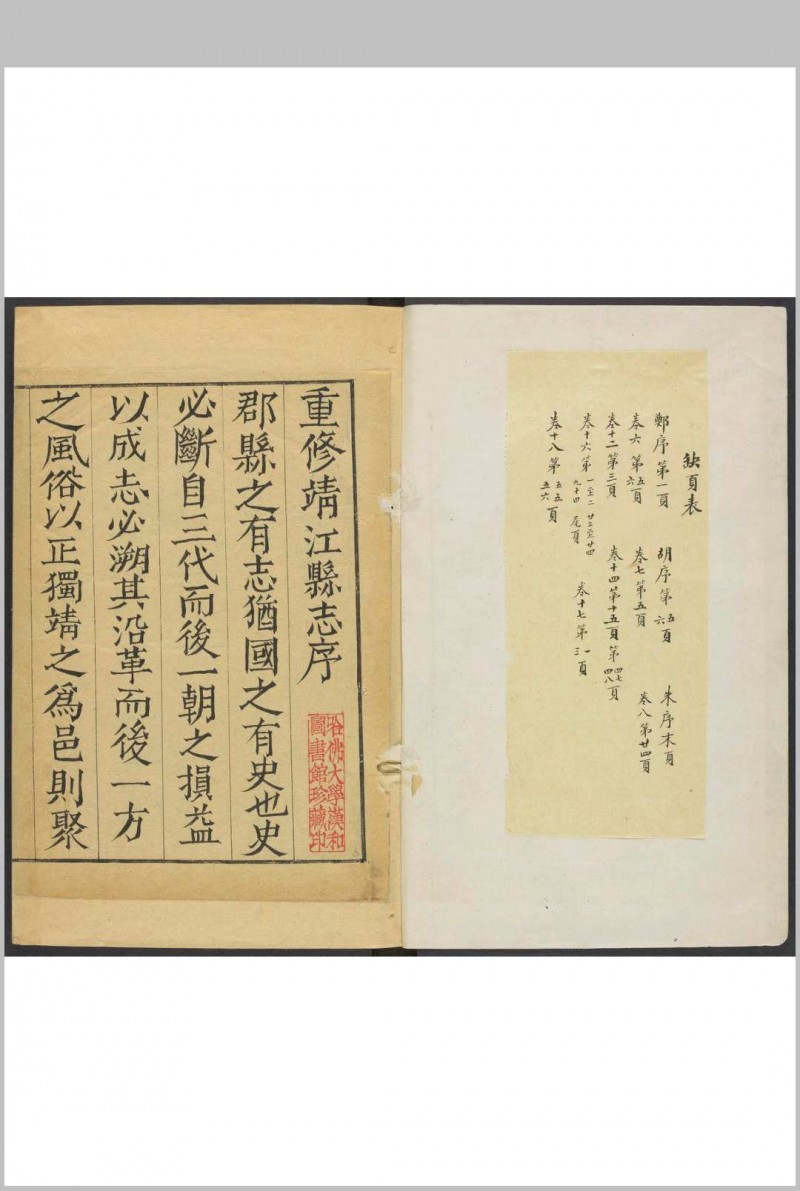 缺頁表
鄭序第一頁 胡序第五六頁 朱序末頁
卷六第五六頁 卷七第五頁 卷八第廿四頁
卷十二第三頁 卷十四第十五頁第四七四八頁
卷十六第一至二廿二至廿四九十四尾頁 卷十七第一二頁
卷十八第五五五六頁
重修靖江縣志序
郡縣之有志猶國之有史也史
必斷自三代而後一朝之損益
以成志必溯其沿革而後一方
之風俗以正獨靖之為邑則聚
哈佛大學漢和
圖書館珍藏印